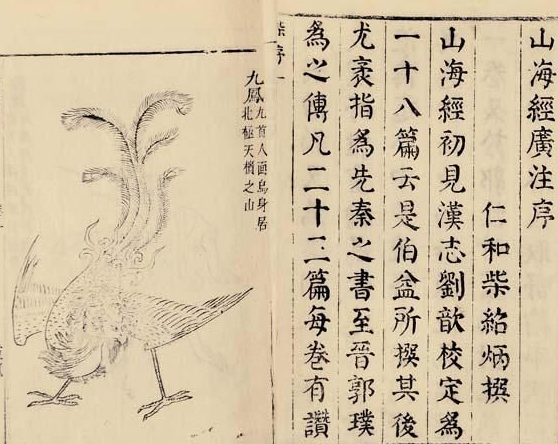 山海經廣注序
仁和柴紹炳撰
山海經初見漢志劉歆校定為
一十八篇云是伯益所撰其後
尤袤指為先秦之書至晉郭璞
為之傳凡二十三篇每卷有讚
柴序 一
九鳳 九首人面鳥身居
北極天樻之山